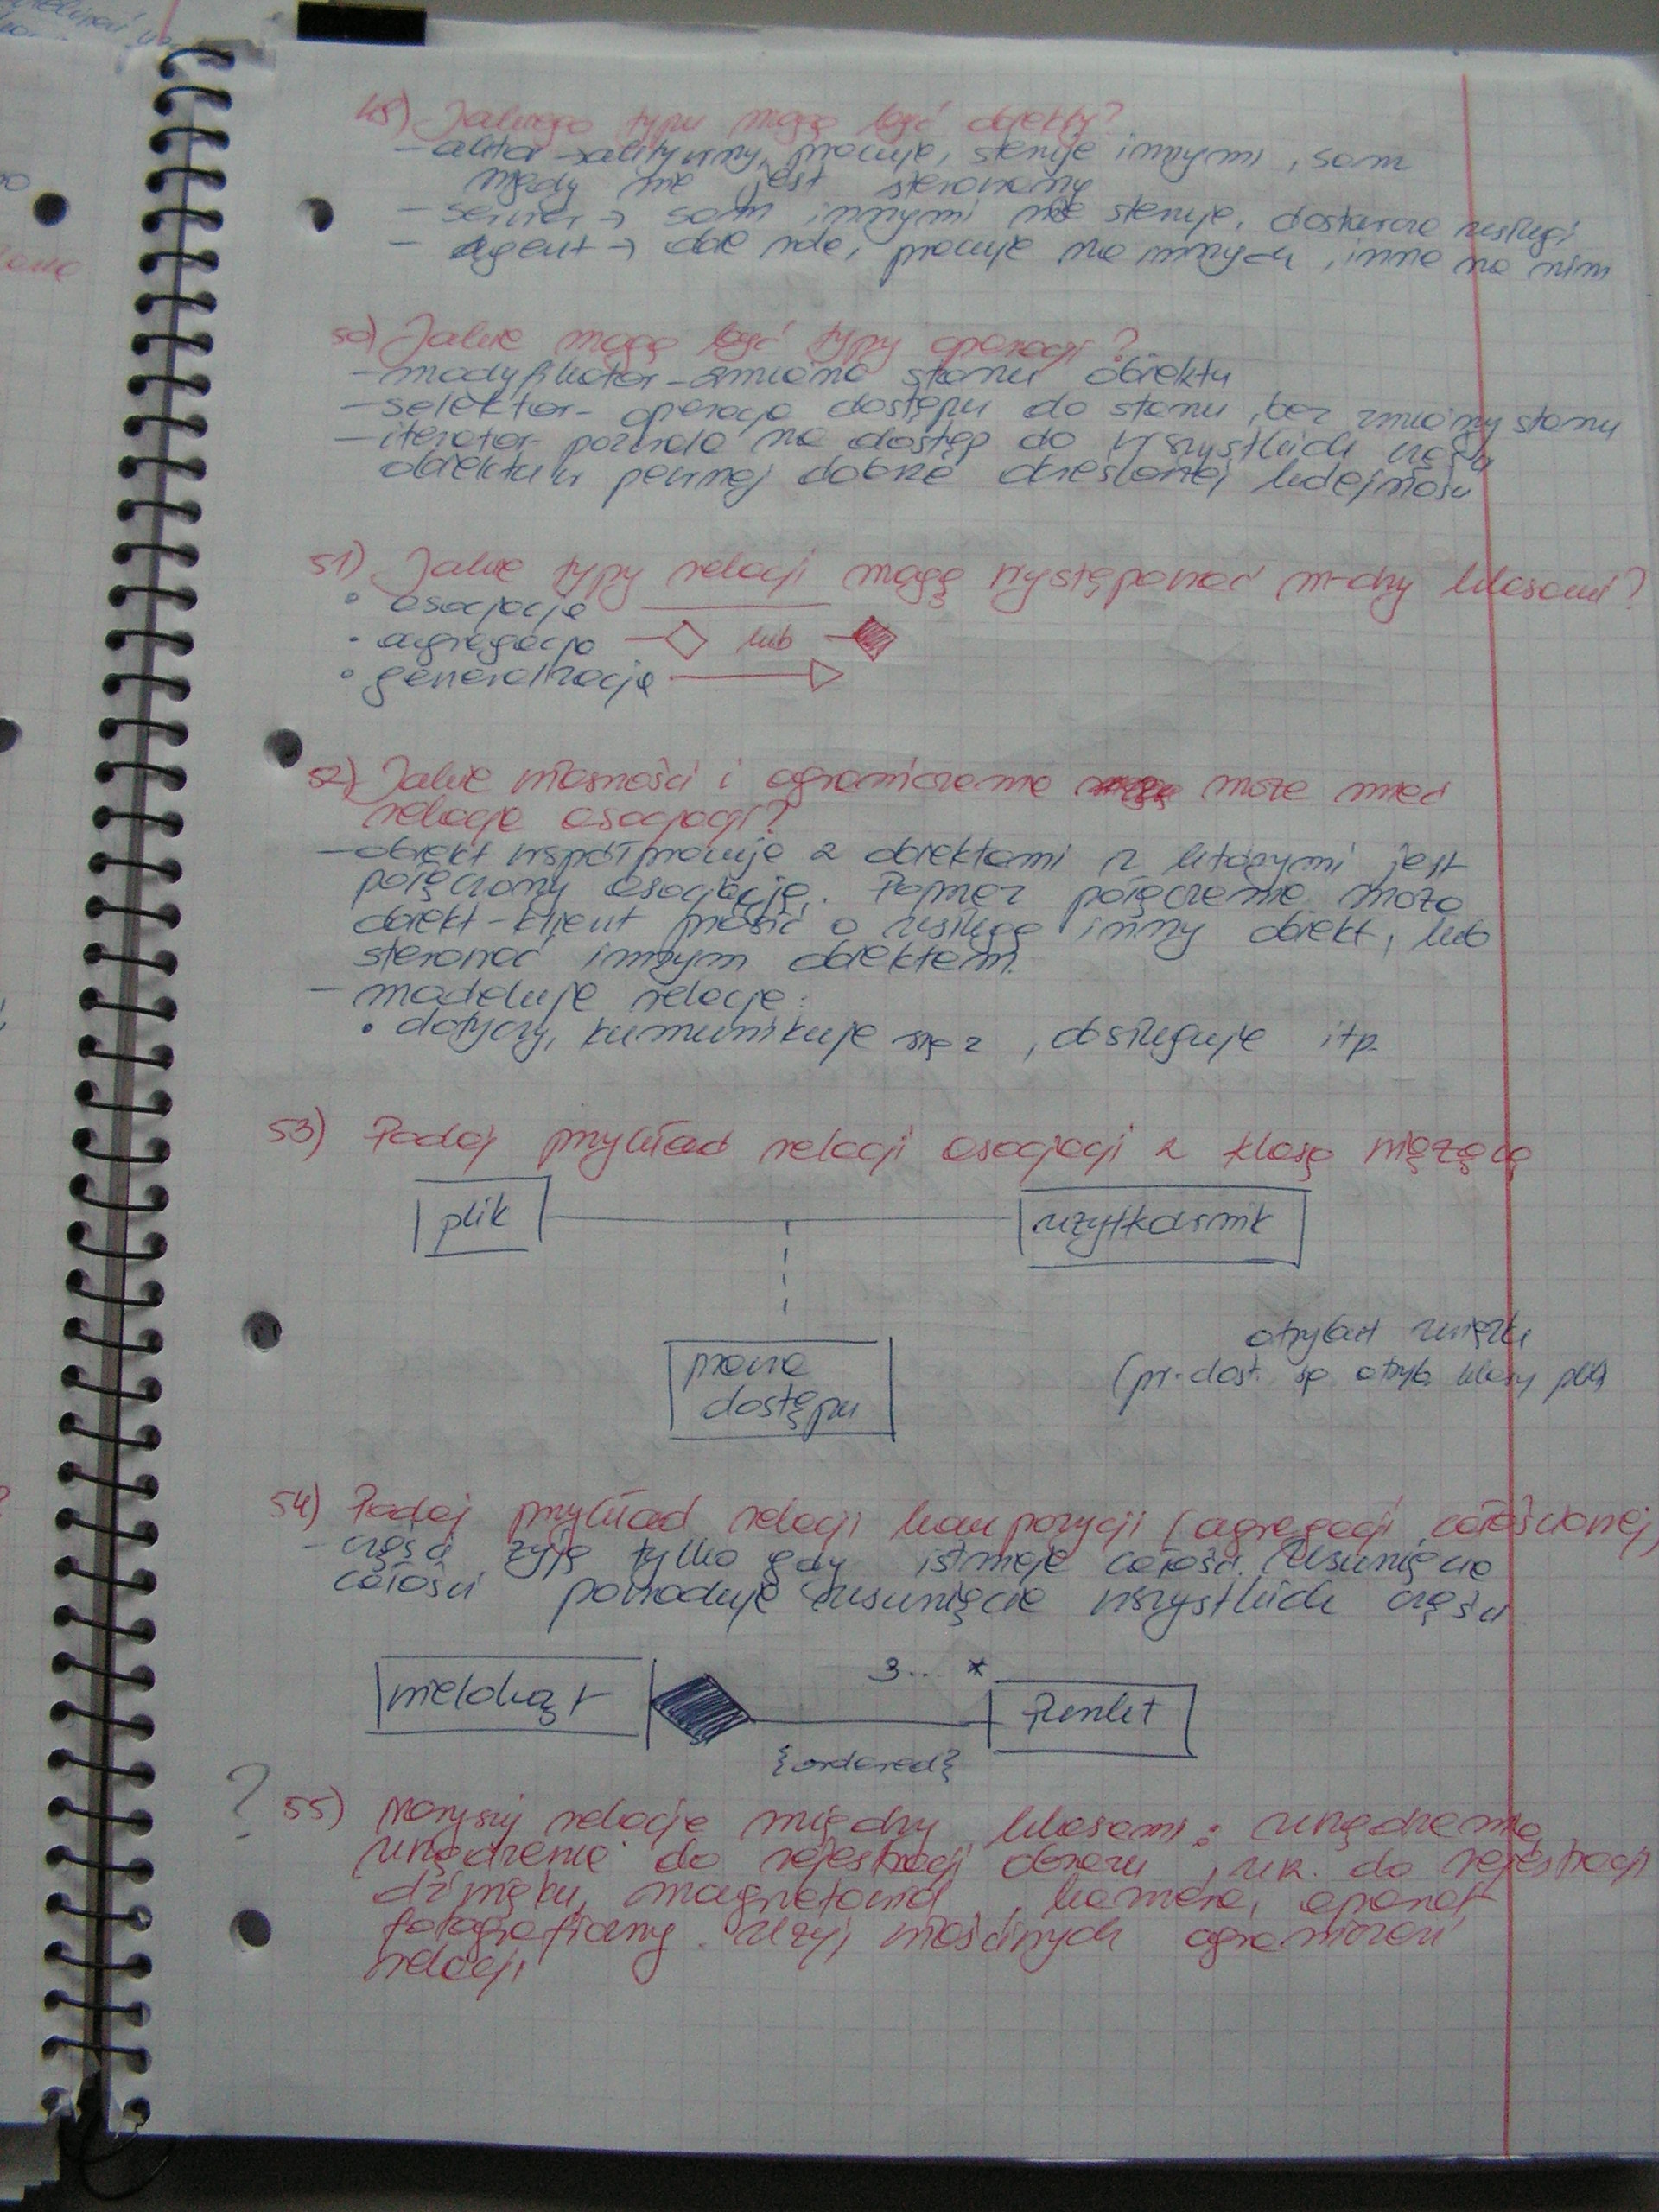 48) Jakiego typu mogą być obiekty?
- aktor → aktywny, pracuje, steruje innymi, sam
nigdy nie jest sterowany
- serwer → sam innymi nie steruje, dostarcza usługi
- agent → obie role, pracuje na innych, inne na nim
50) Jakie mogą być typy operacji?
- modyfikator - zmiana stanu obiektu
- selektor - operacja dostępu do stanu, bez zmiany stanu
- iterator - pozwala na dostęp do wszystkich części
obiektu w pewnej dobrze określonej kolejności
51) Jakie typy relacji mogą występować m-dzy klasami?
• asocjacja
• agregacja lub
• generalizacja
52) Jakie własności i ograniczenia może mieć
relacja asocjacji?
- obiekt współpracuje z obiektami z którymi jest
połączony asocjacją. Poprzez połączenie może
obiekt-klient prosić o usługę inny obiekt, lub
sterować innym obiektem.
- modeluje relacje:
• dotyczy, kumunikuje się z, obsługuje itp.
53) Podaj przykład relacji asocjacji z klasą wiążącą
plik
użytkownik
prawa
dostępu
atrybut
(pr. dost. są atryb. klasy plik)
54) Podaj przykład relacji kompozycji (agregacji całościowej)
- części żyją tylko gdy istnieje całość. Usunięcie
całości powoduje usunięcie wszystkich części
wielokąt
3.. *
Punkt
{ordered}
?
55) Narysuj relacje między klasami: urządzenie,
urządzenie do rejestracji obrazu, urz. do rejestracji
dźwięku, magnetowid, kamera, aparat
fotograficzny. Użyj właściwych ograniczeń
relacji